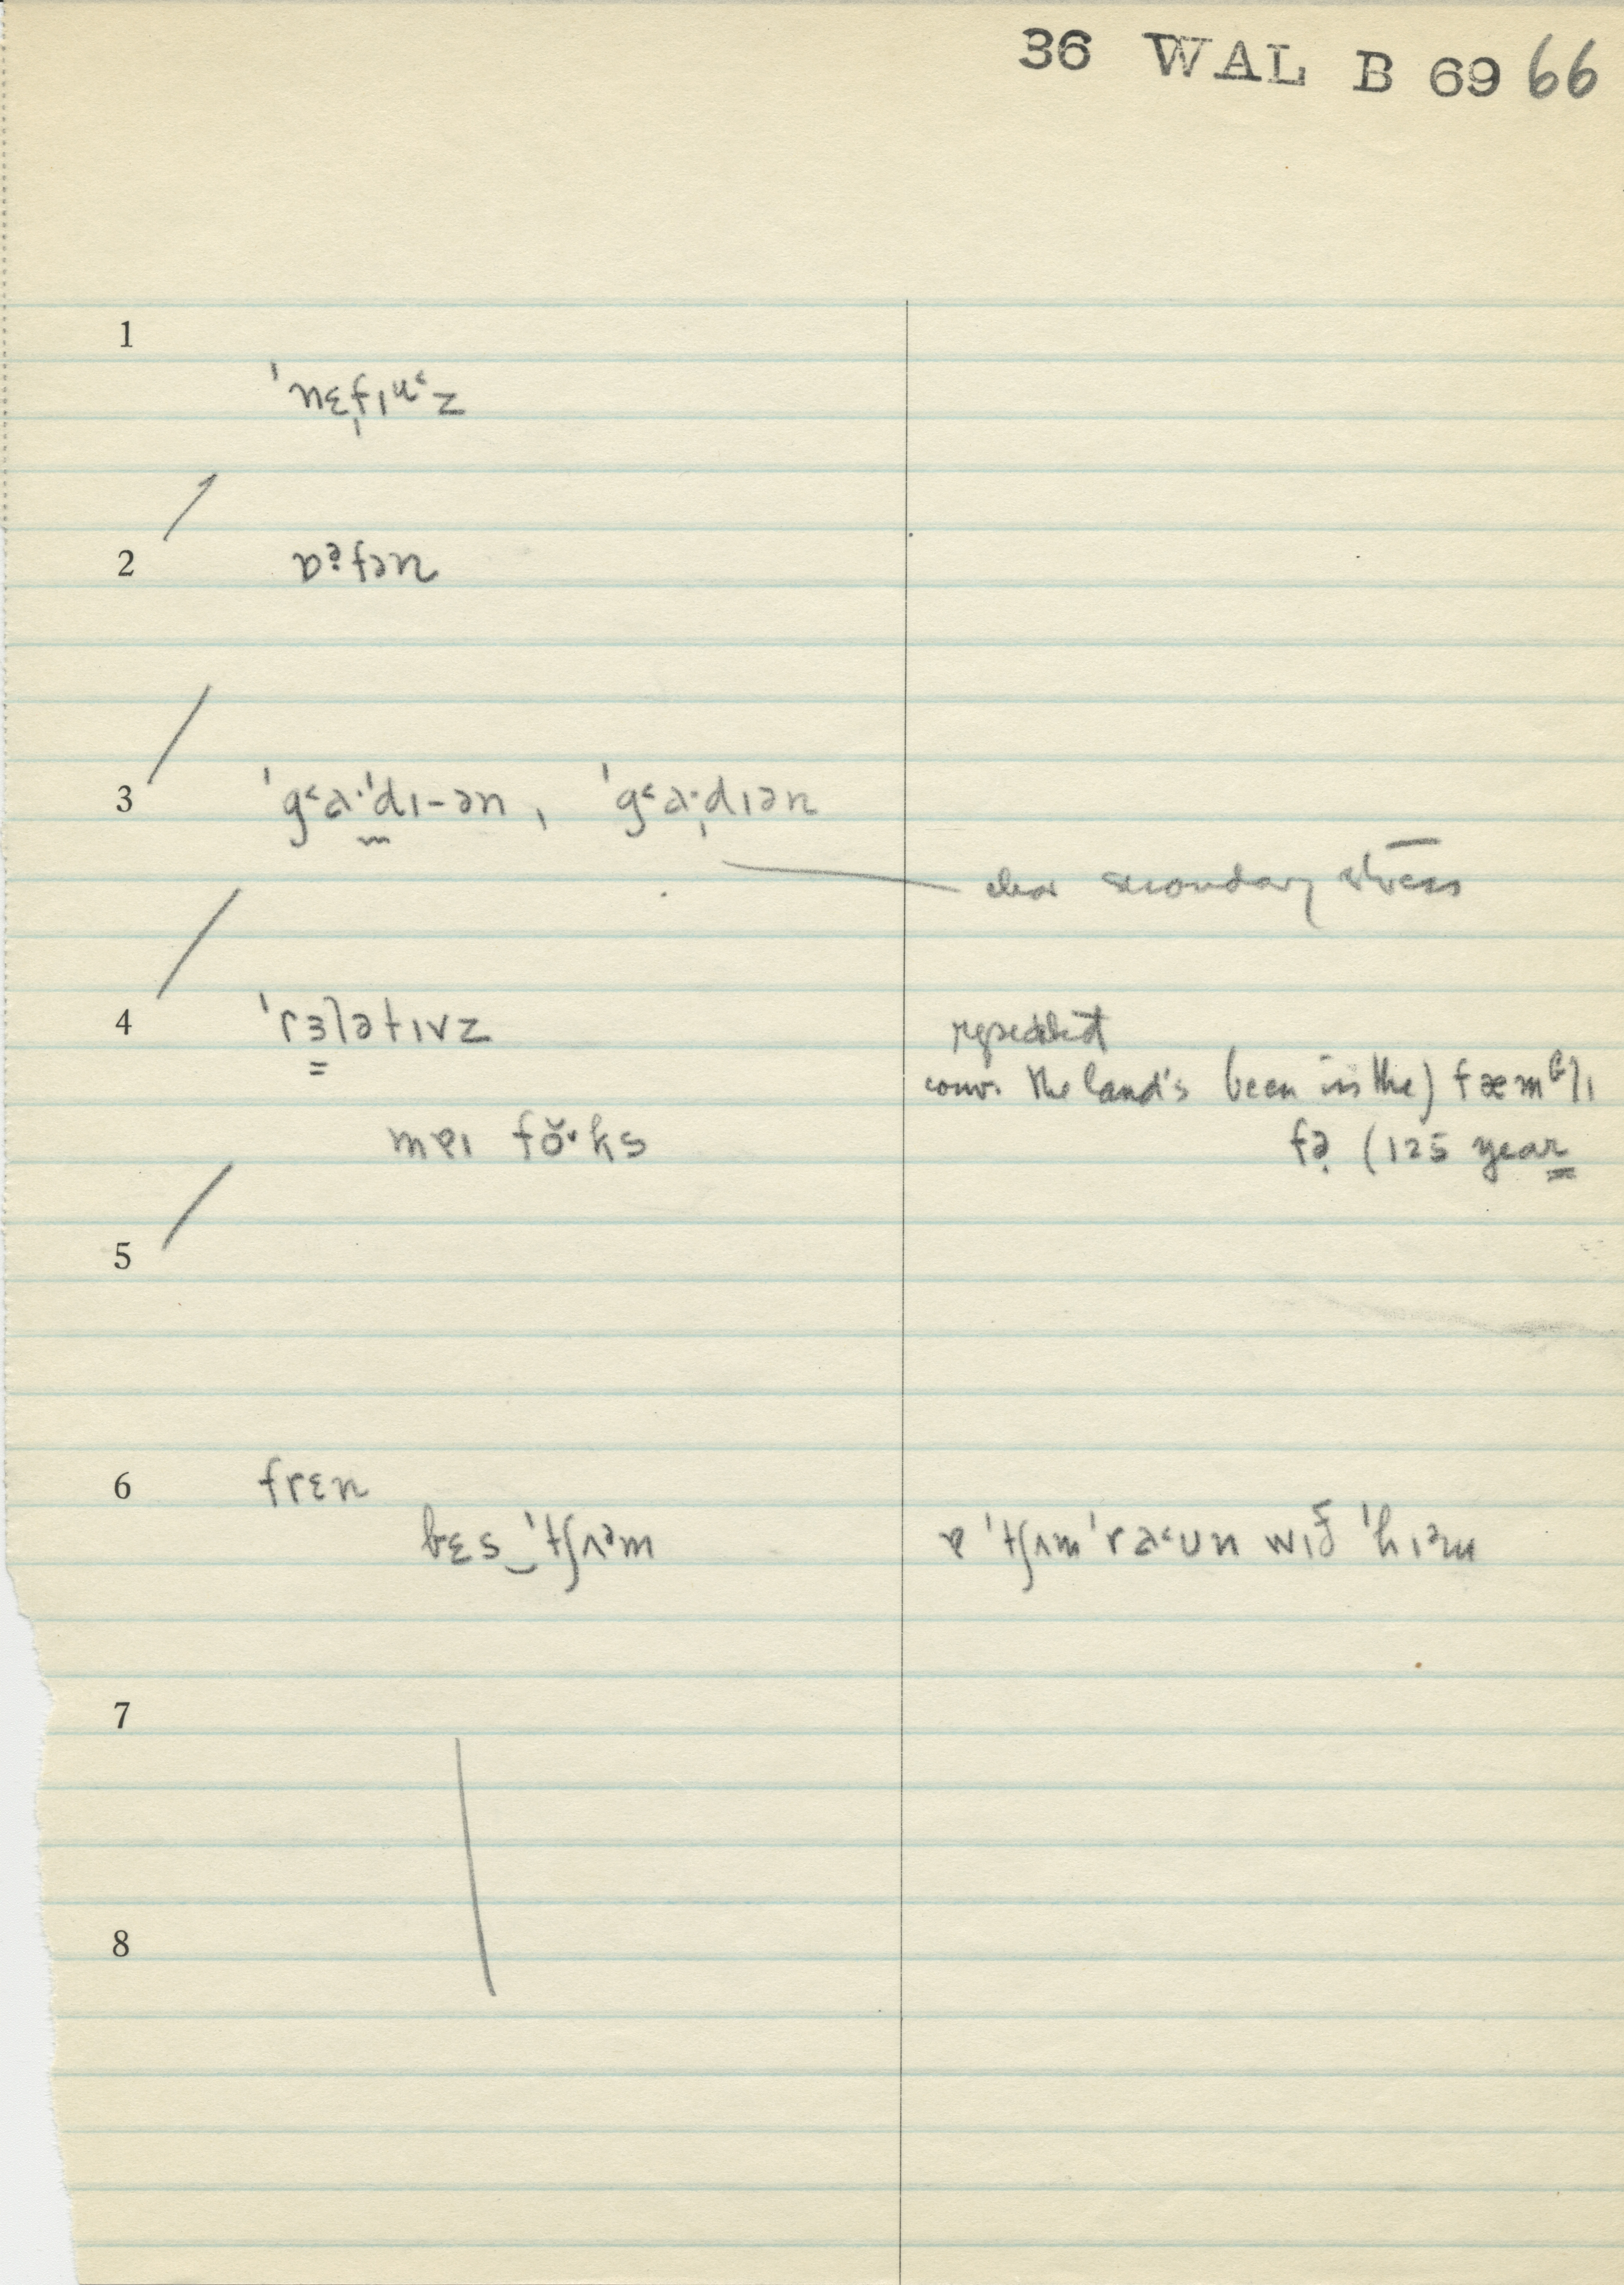 36 WAL B 69 66
1
ˈnɛˌfɪu˂z
2
ɒə̣fən
3 ˈg˂a·ˈdɪ-ən, ˈg˂a·ˌdɪən
clear secondary stress
4 ˈrɜlətɪvz
repeated
conv. the land's been in the) fæmᵻlɪ
mɐɪ fo˘˅ks
fə̣ (125 year
5
6 frɛn
bɛs‿ˈtʃʌᵊm
ɐ ˈtʃʌm ˈra˂ʊn wɪð ˈhɪᵊm
7
8